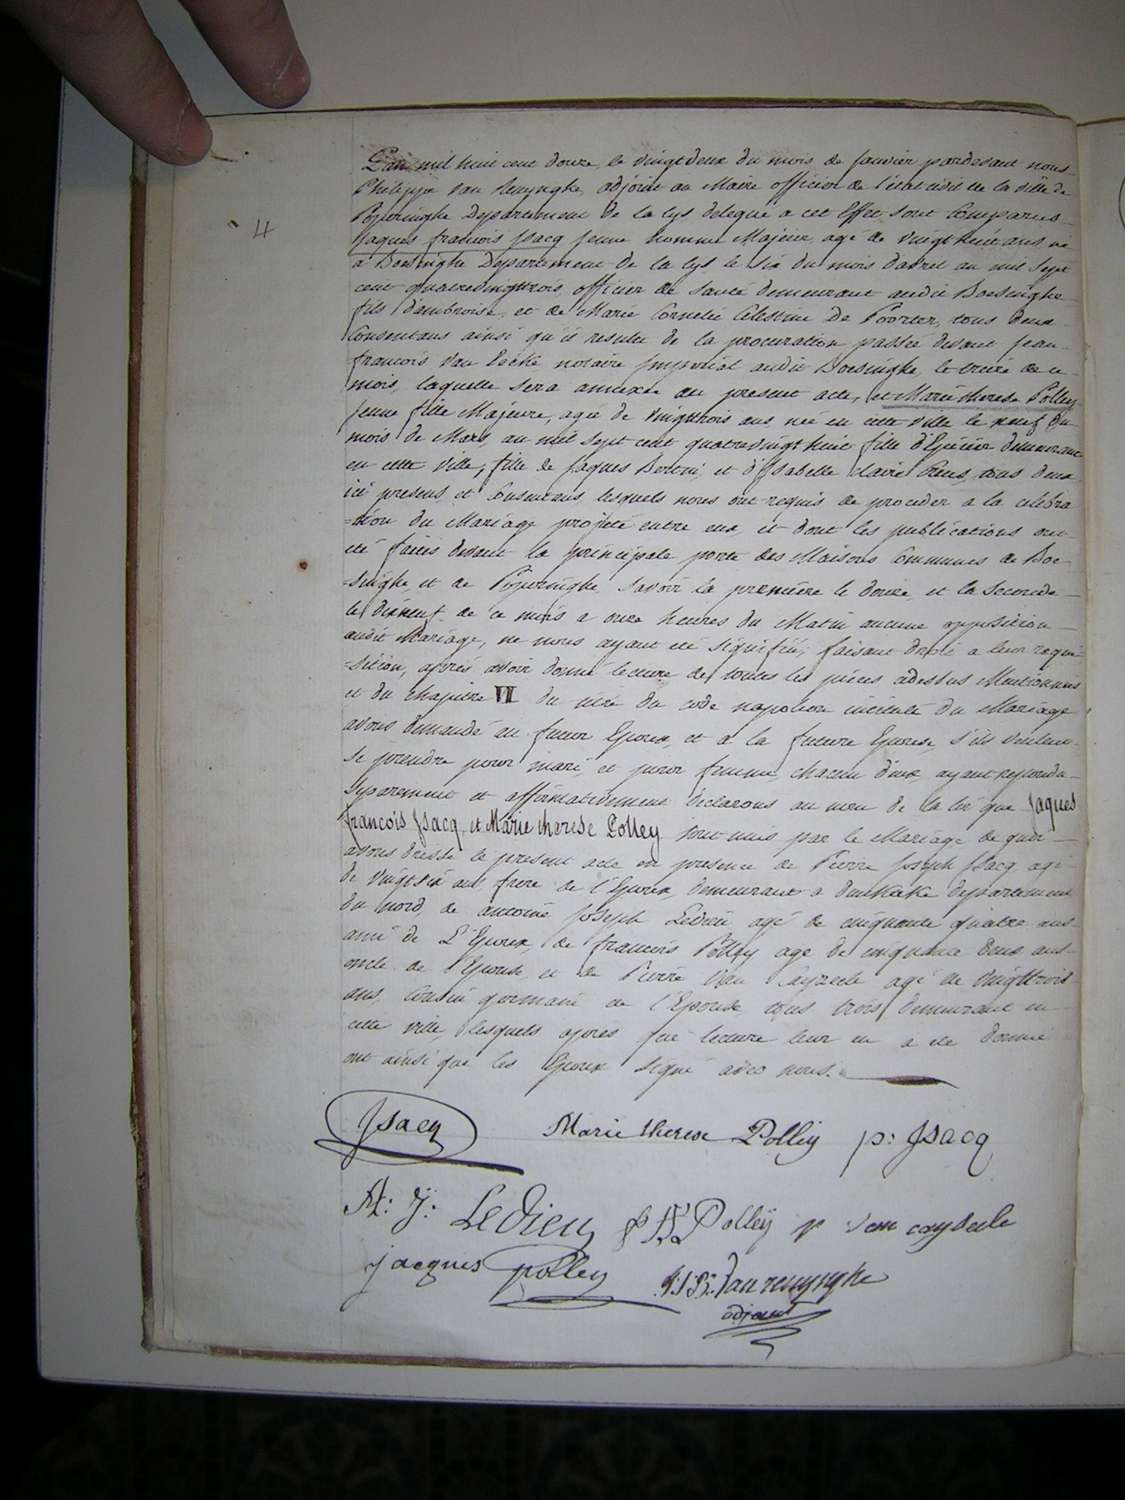 4
L'an mil huit cent douze, le vingtdeux du mois de Janvier pardevant nous
Philippe van Renynghe, adjoint au Maire officier de l'état civil de la ville de
Poperinghe Departement de la Lys delegué a cet Effet sont Comparus
Jaques francois Jsacq jeune homme Majeur, agé de vingt huit ans né
à Boesinghe Departement de la Lys le six du mois d'avril an mil sept
cent quatrevingttrois officier de santé demeurant audit Boesinghe
fils d'ambroise, et de Marie Cornelie Célestine De Poorter, tous deux
Consentans ainsi qu'il resulte de la procuration passée devant jean
francois van notaire Jmperial audit Boesinghe, le treize de ce
mois, laquelle sera annexée au present acte, et Marie therese Polley
Jeune fille Majeure, agée de vingttrois ans née en cette ville le neuf du
mois de Mars, an mil sept cent quatrevingt huit fille d'Epicier demeurant
en cette ville, fille de Jaques et d'Jsabelle claire tous deux
ici presens et Consentans lesquels nous ont requis de proceder a la celebra
=tion du Mariage projeté entre eux et dont les publications ont
eté faites devant la principale porte des Maisons Communes de Boe
=singhe et de Poperinghe, savoir la première le douze et la seconde
le dixneuf de ce mois a onze heures du Matin aucune opposition
audit Mariage, ne nous ayant eté signifiée, faisant droit a leur requi
=sition, après avoir donné lecture de toutes les pièces adessus Mentionnées
et du chapitre VI du titre du code napoleon intitulé du Mariage
avons demandé au futur Epoux, et a la future Epouse, s'ils veulent
se prendre pour mari, et pour femme, chacun d'eux ayant repondu
Separement et affirmativement declarons au nom de la loi que Jaques
francois Jsacq, et Marie therese Polley sont unis par le Mariage de quoi
avons dressé le present acte en presence de Pierre Joseph Jsacq agé
de vingt six ans frere de l'Epoux, demeurant a departement
du nord, de antoine Joseph Ledieu agé de cinquante quatre ans
ami de L'Epoux, de francois Polley age de cinquante deux ans
oncle de l'Epouse, et de Pierre Van Cayseele agé de vingttrois
ans Cousin germain de l'Epouse, tous trois demeurant en
cette ville, lesquels apres que lecture leur en a eté donné
ont ainsi que les Epoux signé avec nous.
Jsacq Marie therese Polley p: Jsacq
A: J: LeDieu Polleÿ p van cayseele
jacques polley Van renynghe
adjoint